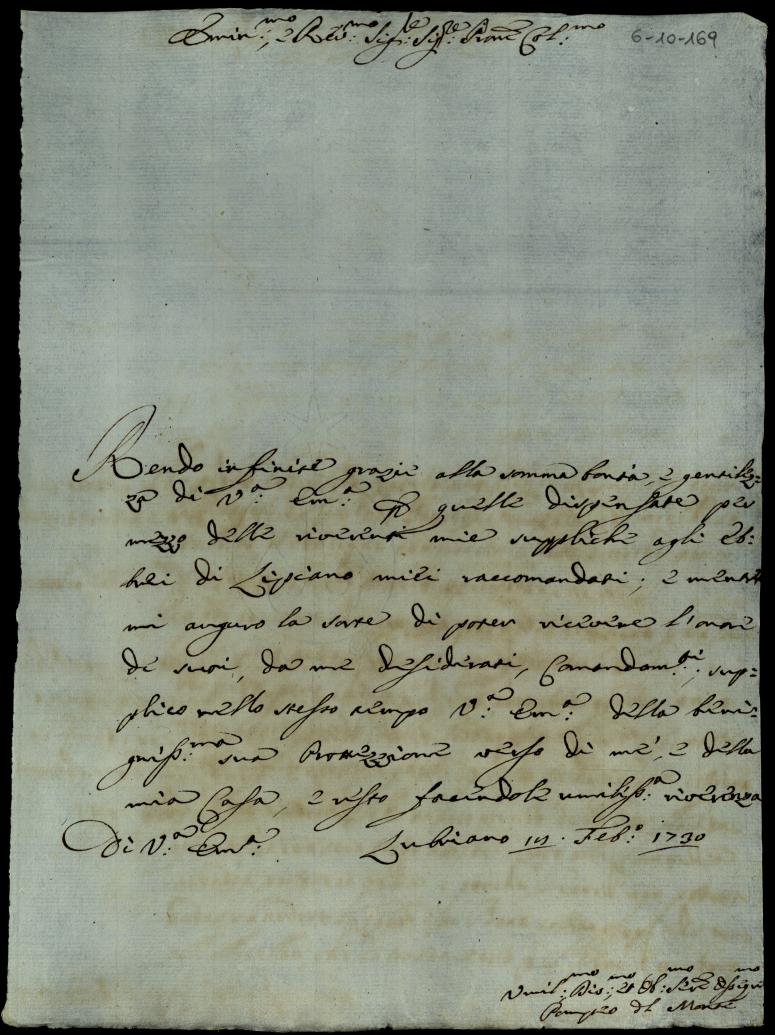 Emin:mo, e Reu:mo Sig:re Sig:re Pron̄e Col:mo
6-10-169
Rendo infinite grazie alla somma bontà, e gentilez=
za di V:a Em:a p quelle dispensate per
mezzo delle riverenti mie suppliche agli Eb=
brei di Lipiano miei raccomandati; e mentre
mi auguro la sorte di poter ricevere l'onore
de suoi, da me desiderati, Comandam:ti, sup=
plico nello stesso tempo V:a Em:a della beni=
gniss:ma sua Protezzione verso di me, e della
mia Casa, e resto facendole umiliss:a riverenza
Di V:a Em:a Lubriano Feb:o 1730
Umil:mo Dio:mo et Ob:mo Ser:e
Pompeo del Monte